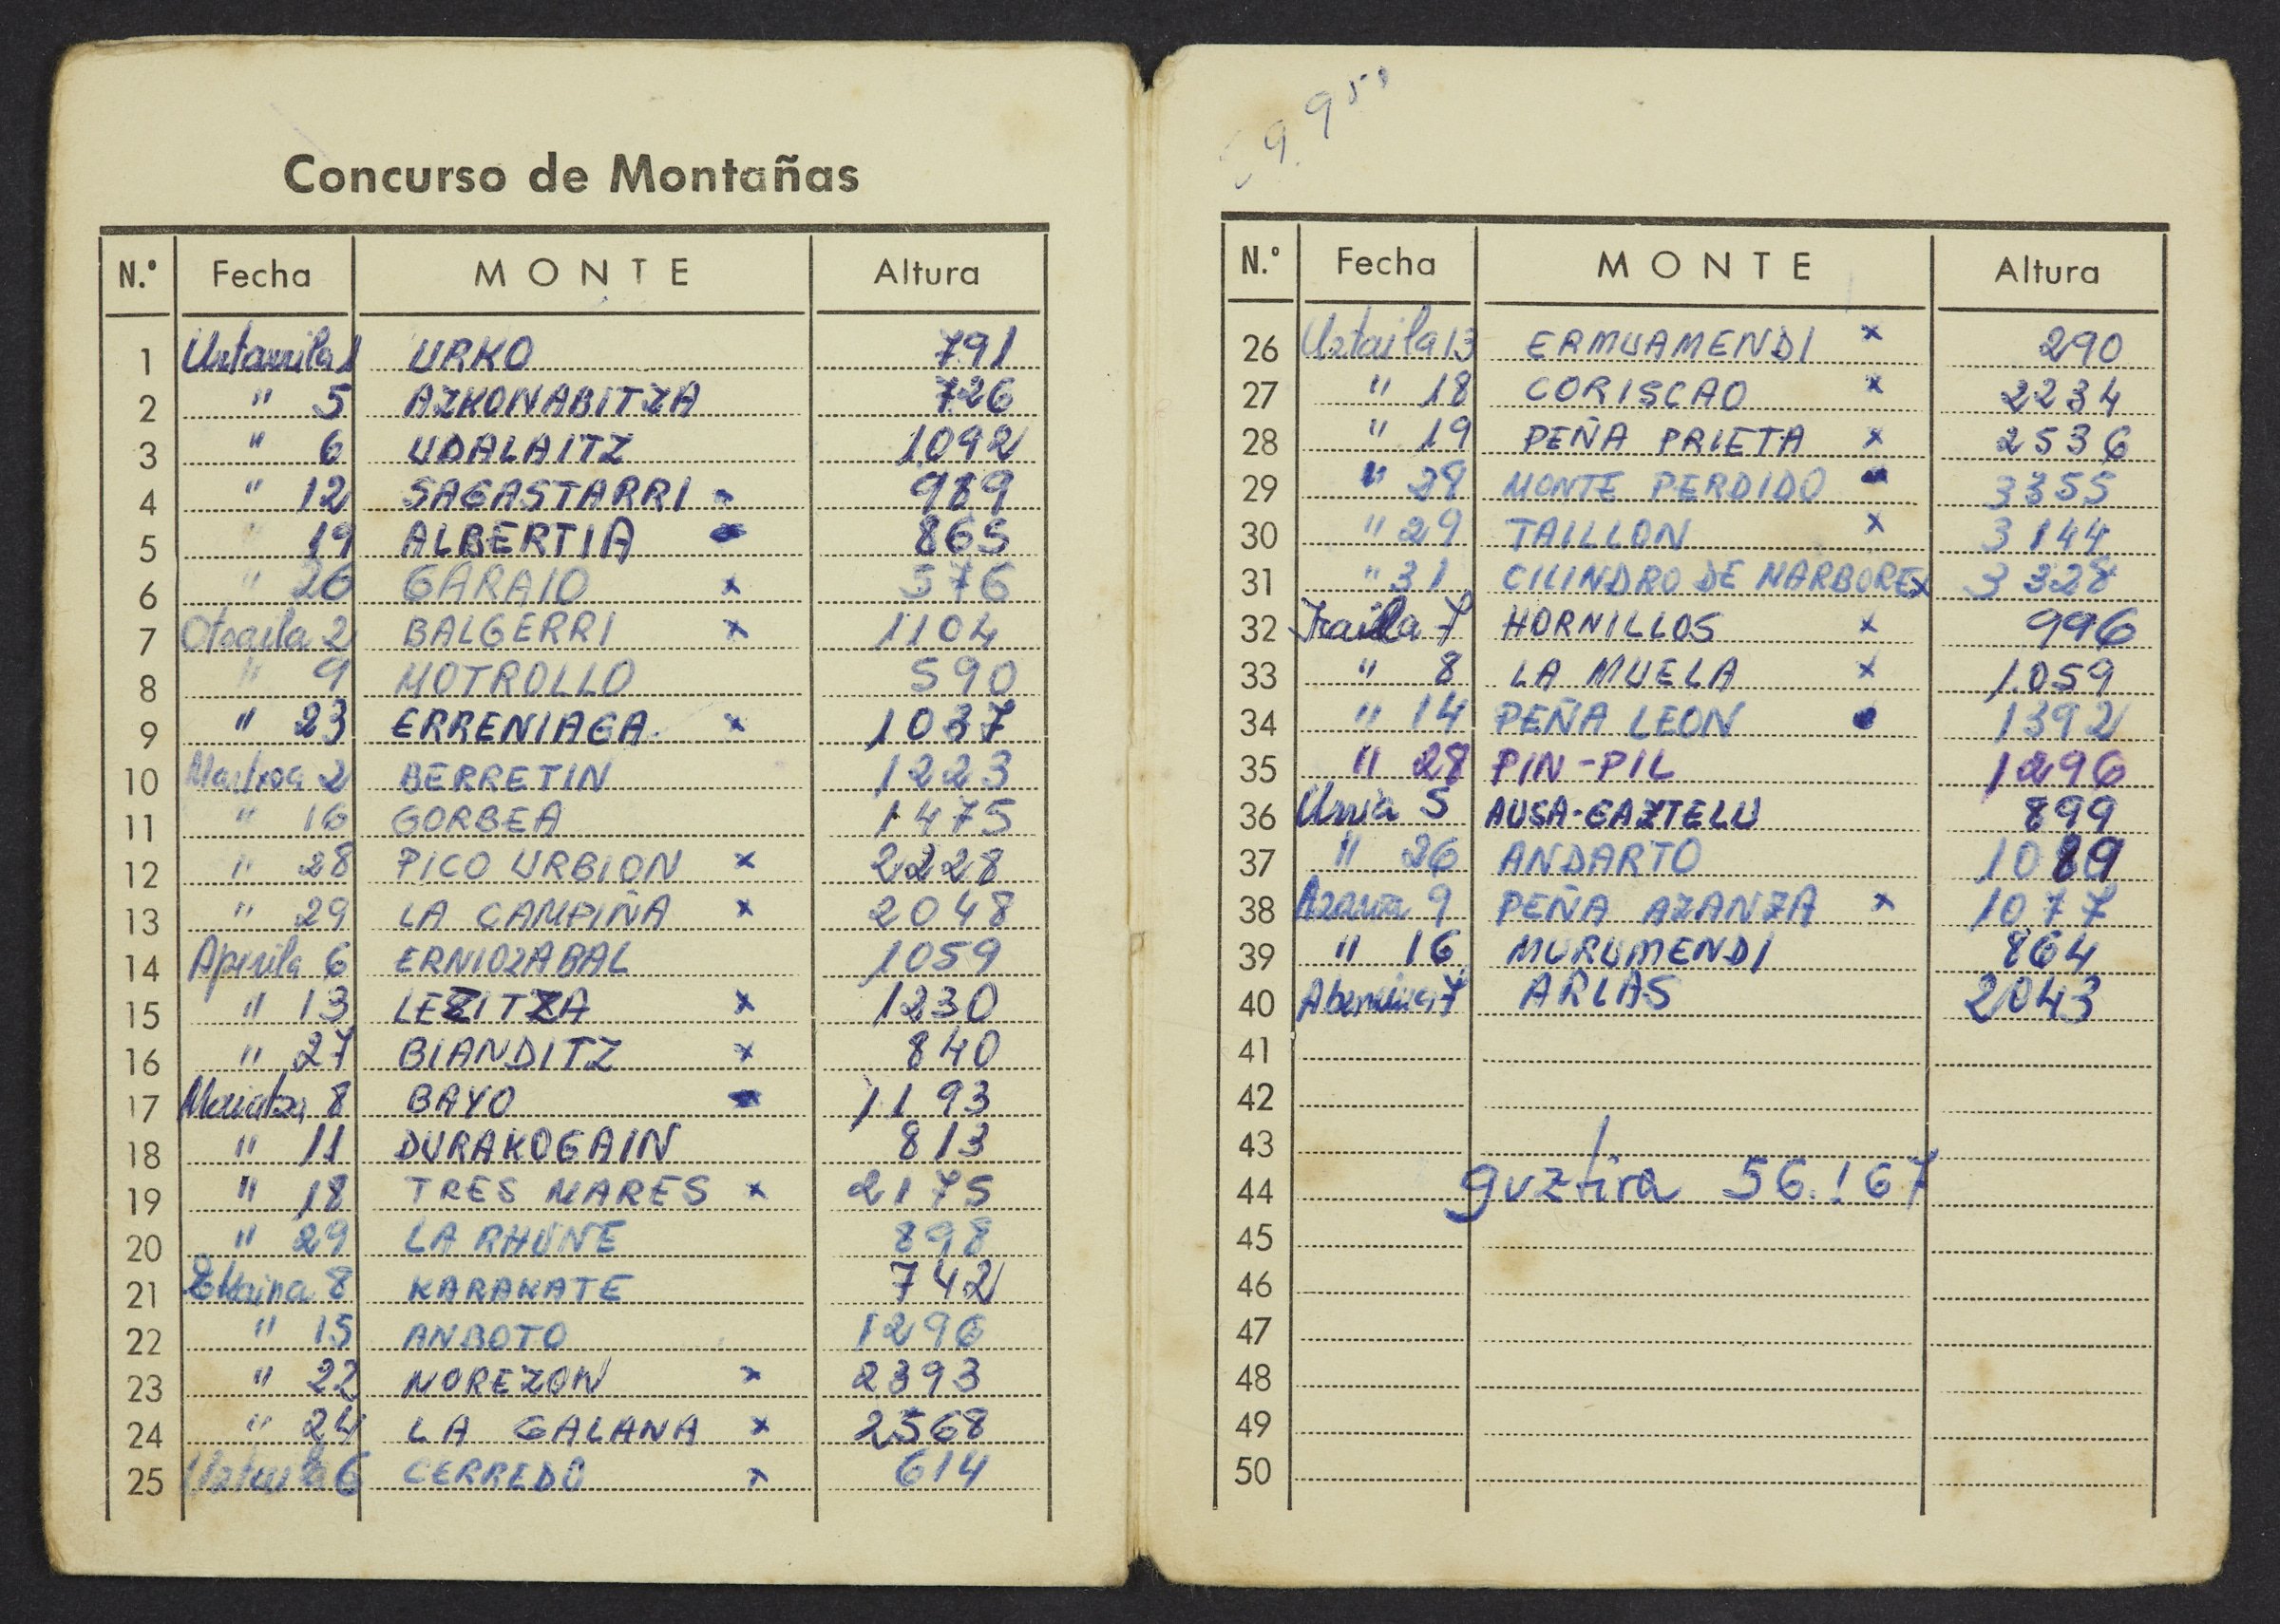 Concurso de Montañas
N.º Fecha MONTE Altura
1 Urtarrila 1 URKO 791
2 " 5 AZKONABITZA 726
3 " 6 UDALAITZ 1092
4 " 12 SAGASTARRI 989
5 " 19 ALBERTIA 865
6 " 26 GARAIO x 576
7 Otsaila 2 BALGERRI x 1104
8 " 9 MOTROLLO 590
9 " 23 ERRENIAGA x 1037
10 Martxoa 2 BERRETIN 1223
11 " 16 GORBEA 1475
12 " 28 PICO URBION x 2228
13 " 29 LA CAMPIÑA x 2048
14 Aperila 6 ERNIOZABAL 1059
15 " 13 LEZITZA x 1230
16 " 27 BIANDITZ x 840
17 Maiatza 8 BAYO 1193
18 " 11 DURAKOGAIN 813
19 " 18 TRES MARES x 2175
20 " 29 LA RHUNE 898
21 Ekaina 8 KARAKATE 742
22 " 15 ANBOTO 1296
23 " 22 MOREZON x 2393
24 " 24 LA GALANA x 2568
25 Uztaila 6 CERREDO x 614
N.º Fecha MONTE Altura
26 Uztaila 13 ERMUAMENDI x 290
27 " 18 CORISCAO x 2234
28 " 19 PEÑA PRIETA x 2536
29 " 28 MONTE PERDIDO 3355
30 " 29 TAILLON x 3144
31 " 31 CILINDRO DE MARBORE x 3328
32 Iraila 7 HORNILLOS x 996
33 " 8 LA MUELA x 1.059
34 " 14 PEÑA LEON 1392
35 " 28 PIN-PIL 1296
36 Urria 5 AUSA-GAZTELU 899
37 " 26 ANDARTO 1089
38 Azaroa 9 PEÑA AZANZA x 1077
39 " 16 MURUMENDI 864
40 Abendua 7 ARLAS 2043
41
42
43
44 guztira 56.167
45
46
47
48
49
50